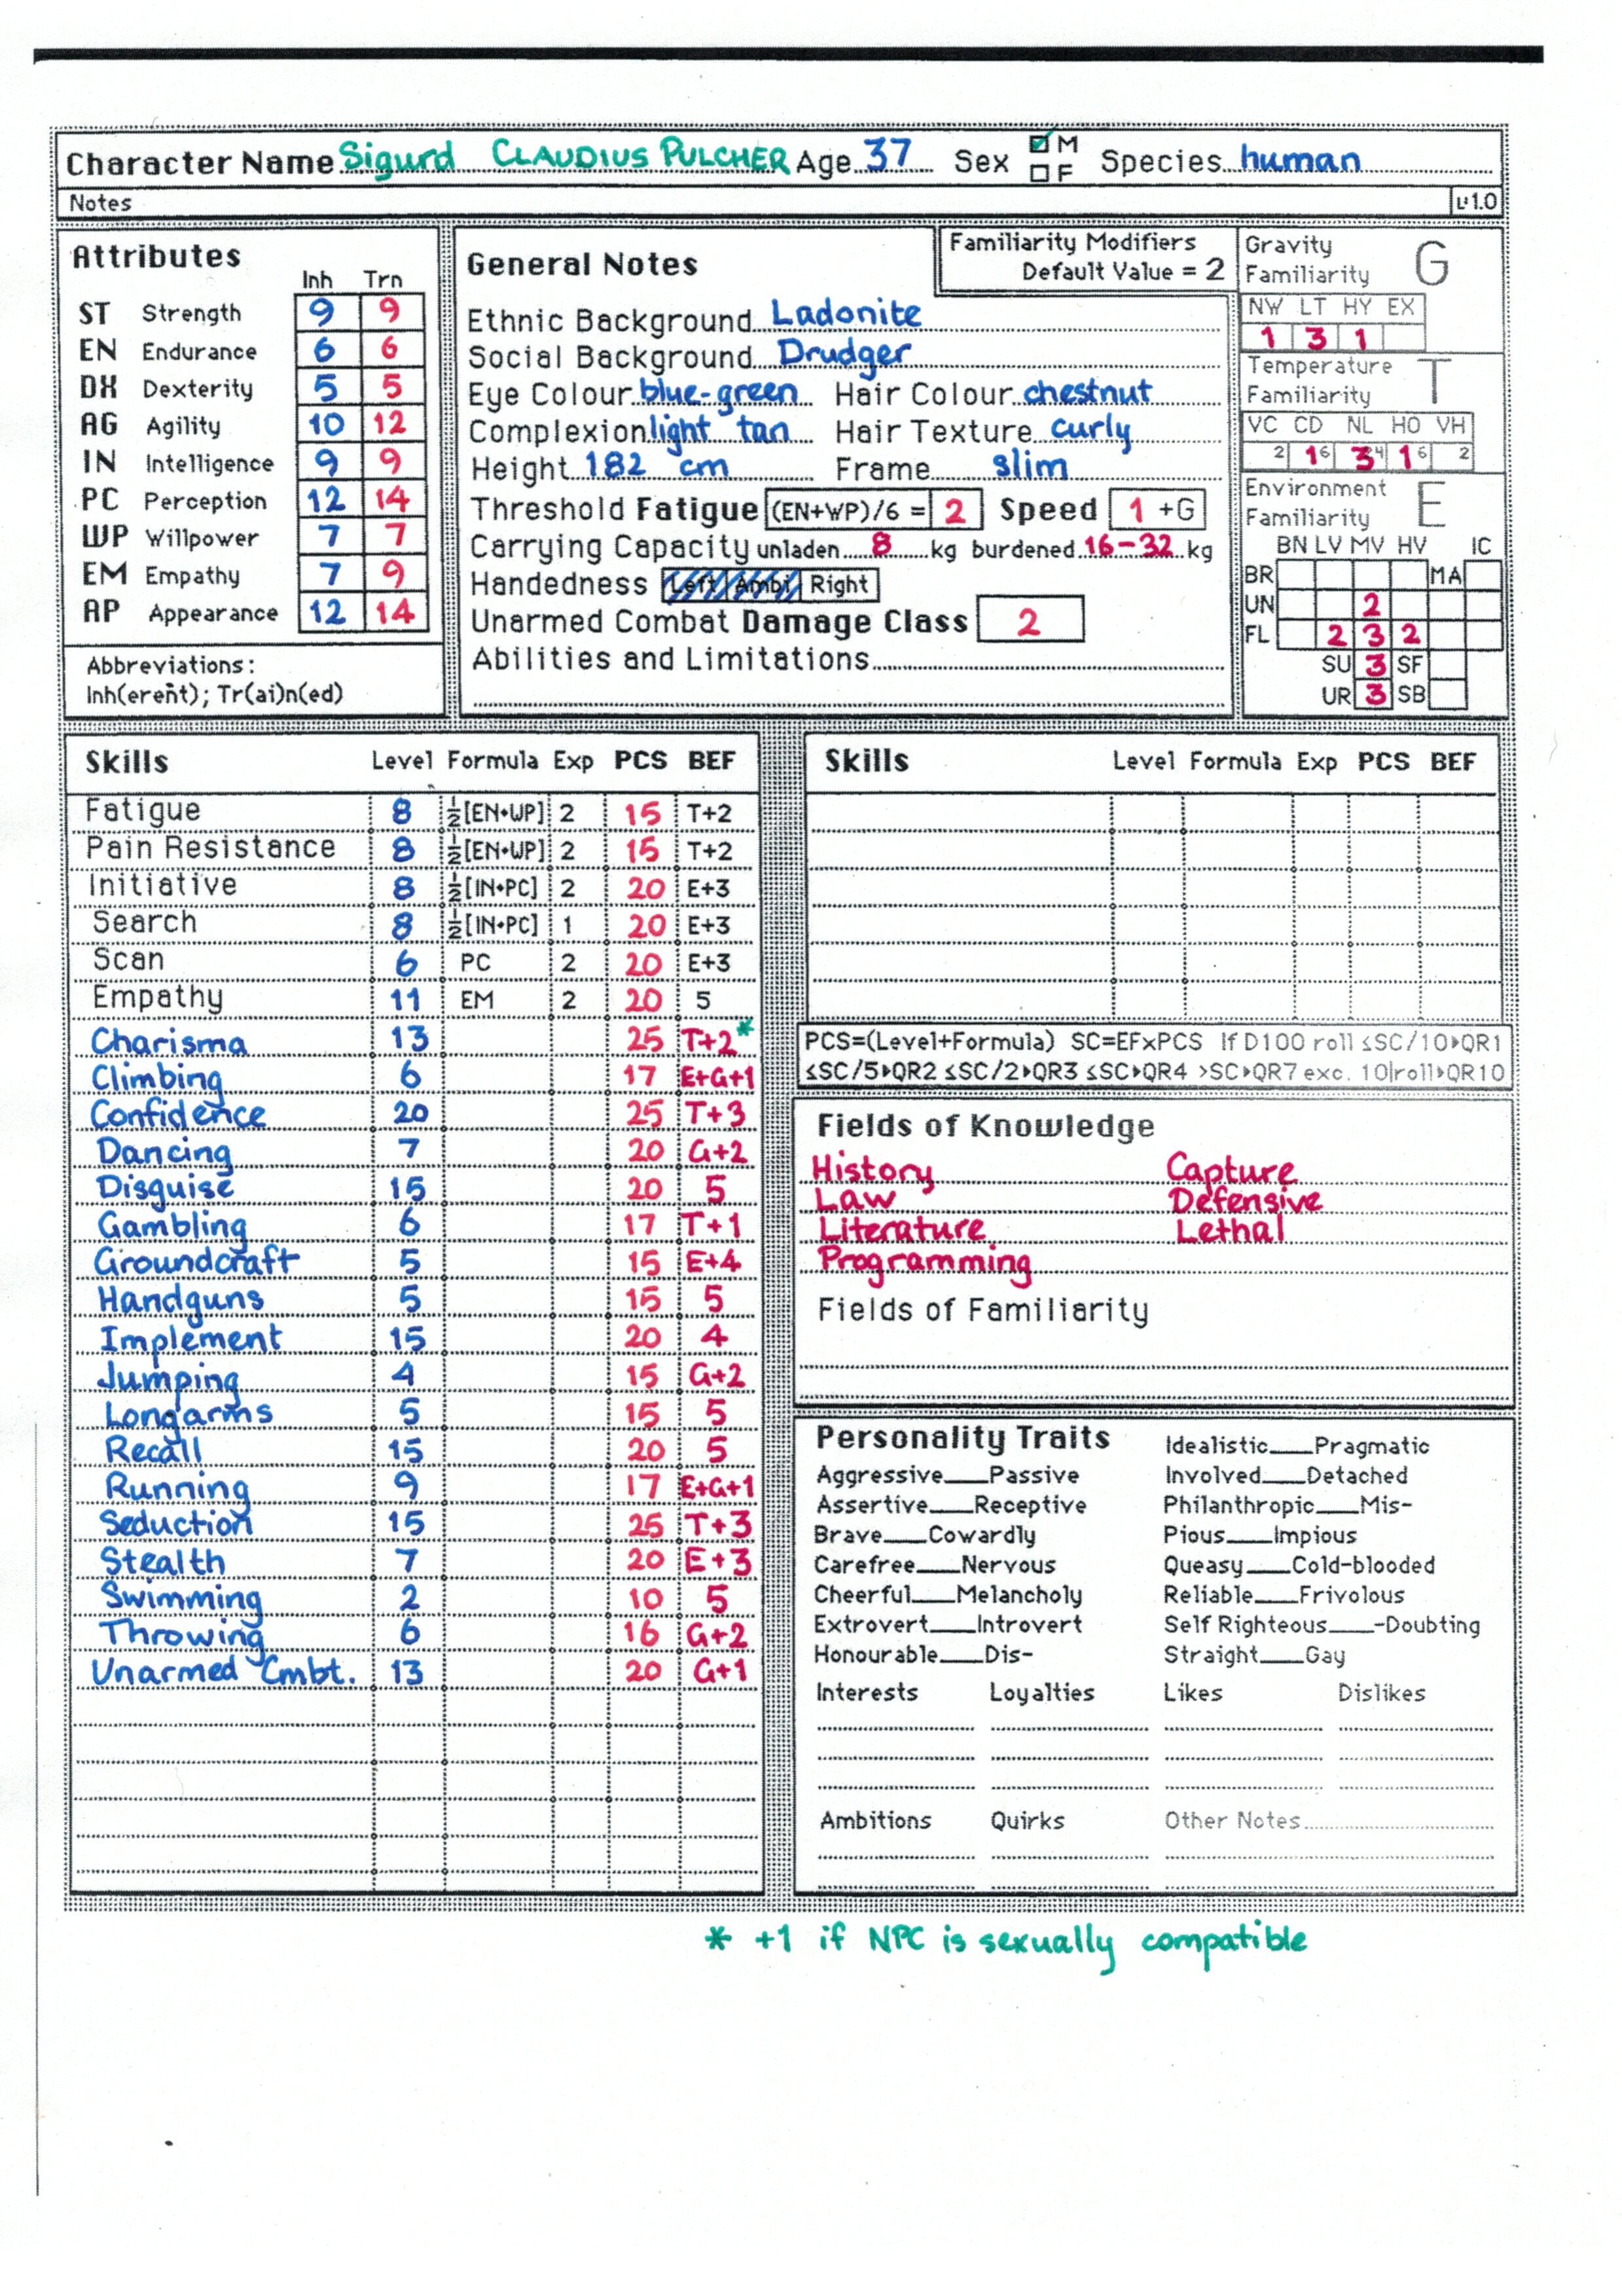 Character Name Sigurd CLAUDIUS PULCHER Age 37 Sex M F Species human
Notes v1.0
Attributes
Inh Trn
ST Strength 9 9
EN Endurance 6 6
DX Dexterity 5 5
AG Agility 10 12
IN Intelligence 9 9
PC Perception 12 14
WP Willpower 7 7
EM Empathy 7 9
AP Appearance 12 14
Abbreviations:
Inh(erent); Tr(ai)n(ed)
General Notes
Ethnic Background Ladonite
Social Background Drudger
Eye Colour blue-green Hair Colour chestnut
Complexion light tan Hair Texture curly
Height 182 cm Frame slim
Threshold Fatigue (EN+WP)/6 = 2 Speed 1 +G
Carrying Capacity unladen 8 kg burdened 16-32 kg
Handedness Left Ambi Right
Unarmed Combat Damage Class 2
Abilities and Limitations
Familiarity Modifiers
Default Value = 2
Gravity G
Familiarity
NW LT HY EX
1 3 1
Temperature T
Familiarity
VC CD NL HO VH
2 1 6 3 4 1 6 2
Environment E
Familiarity
BN LV MV HV IC
BR MA
UN 2
FL 2 3 2
SU 3 SF
UR 3 SB
Skills Level Formula Exp PCS BEF
Fatigue 8 ½[EN+WP] 2 15 T+2
Pain Resistance 8 ½[EN+WP] 2 15 T+2
Initiative 8 ½[IN+PC] 2 20 E+3
Search 8 ½[IN+PC] 1 20 E+3
Scan 6 PC 2 20 E+3
Empathy 11 EM 2 20 5
Charisma 13 25 T+2*
Climbing 6 17 E+G+1
Confidence 20 25 T+3
Dancing 7 20 G+2
Disguise 15 20 5
Gambling 6 17 T+1
Groundcraft 5 15 E+4
Handguns 5 15 5
Implement 15 20 4
Jumping 4 15 G+2
Longarms 5 15 5
Recall 15 20 5
Running 9 17 E+G+1
Seduction 15 25 T+3
Stealth 7 20 E+3
Swimming 2 10 5
Throwing 6 16 G+2
Unarmed Cmbt. 13 20 G+1
Skills Level Formula Exp PCS BEF
PCS=(Level+Formula) SC=EFxPCS If D100 roll ≤SC/10▸QR1
≤SC/5▸QR2 ≤SC/2▸QR3 ≤SC▸QR4 >SC▸QR7 exc. 10|roll▸QR10
Fields of Knowledge
History Capture
Law Defensive
Literature Lethal
Programming
Fields of Familiarity
Personality Traits Idealistic___Pragmatic
Aggressive___Passive Involved___Detached
Assertive___Receptive Philanthropic___Mis-
Brave___Cowardly Pious___Impious
Carefree___Nervous Queasy___Cold-blooded
Cheerful___Melancholy Reliable___Frivolous
Extrovert___Introvert Self Righteous___-Doubting
Honourable___Dis- Straight___Gay
Interests Loyalties Likes Dislikes
Ambitions Quirks Other Notes
* +1 if NPC is sexually compatible